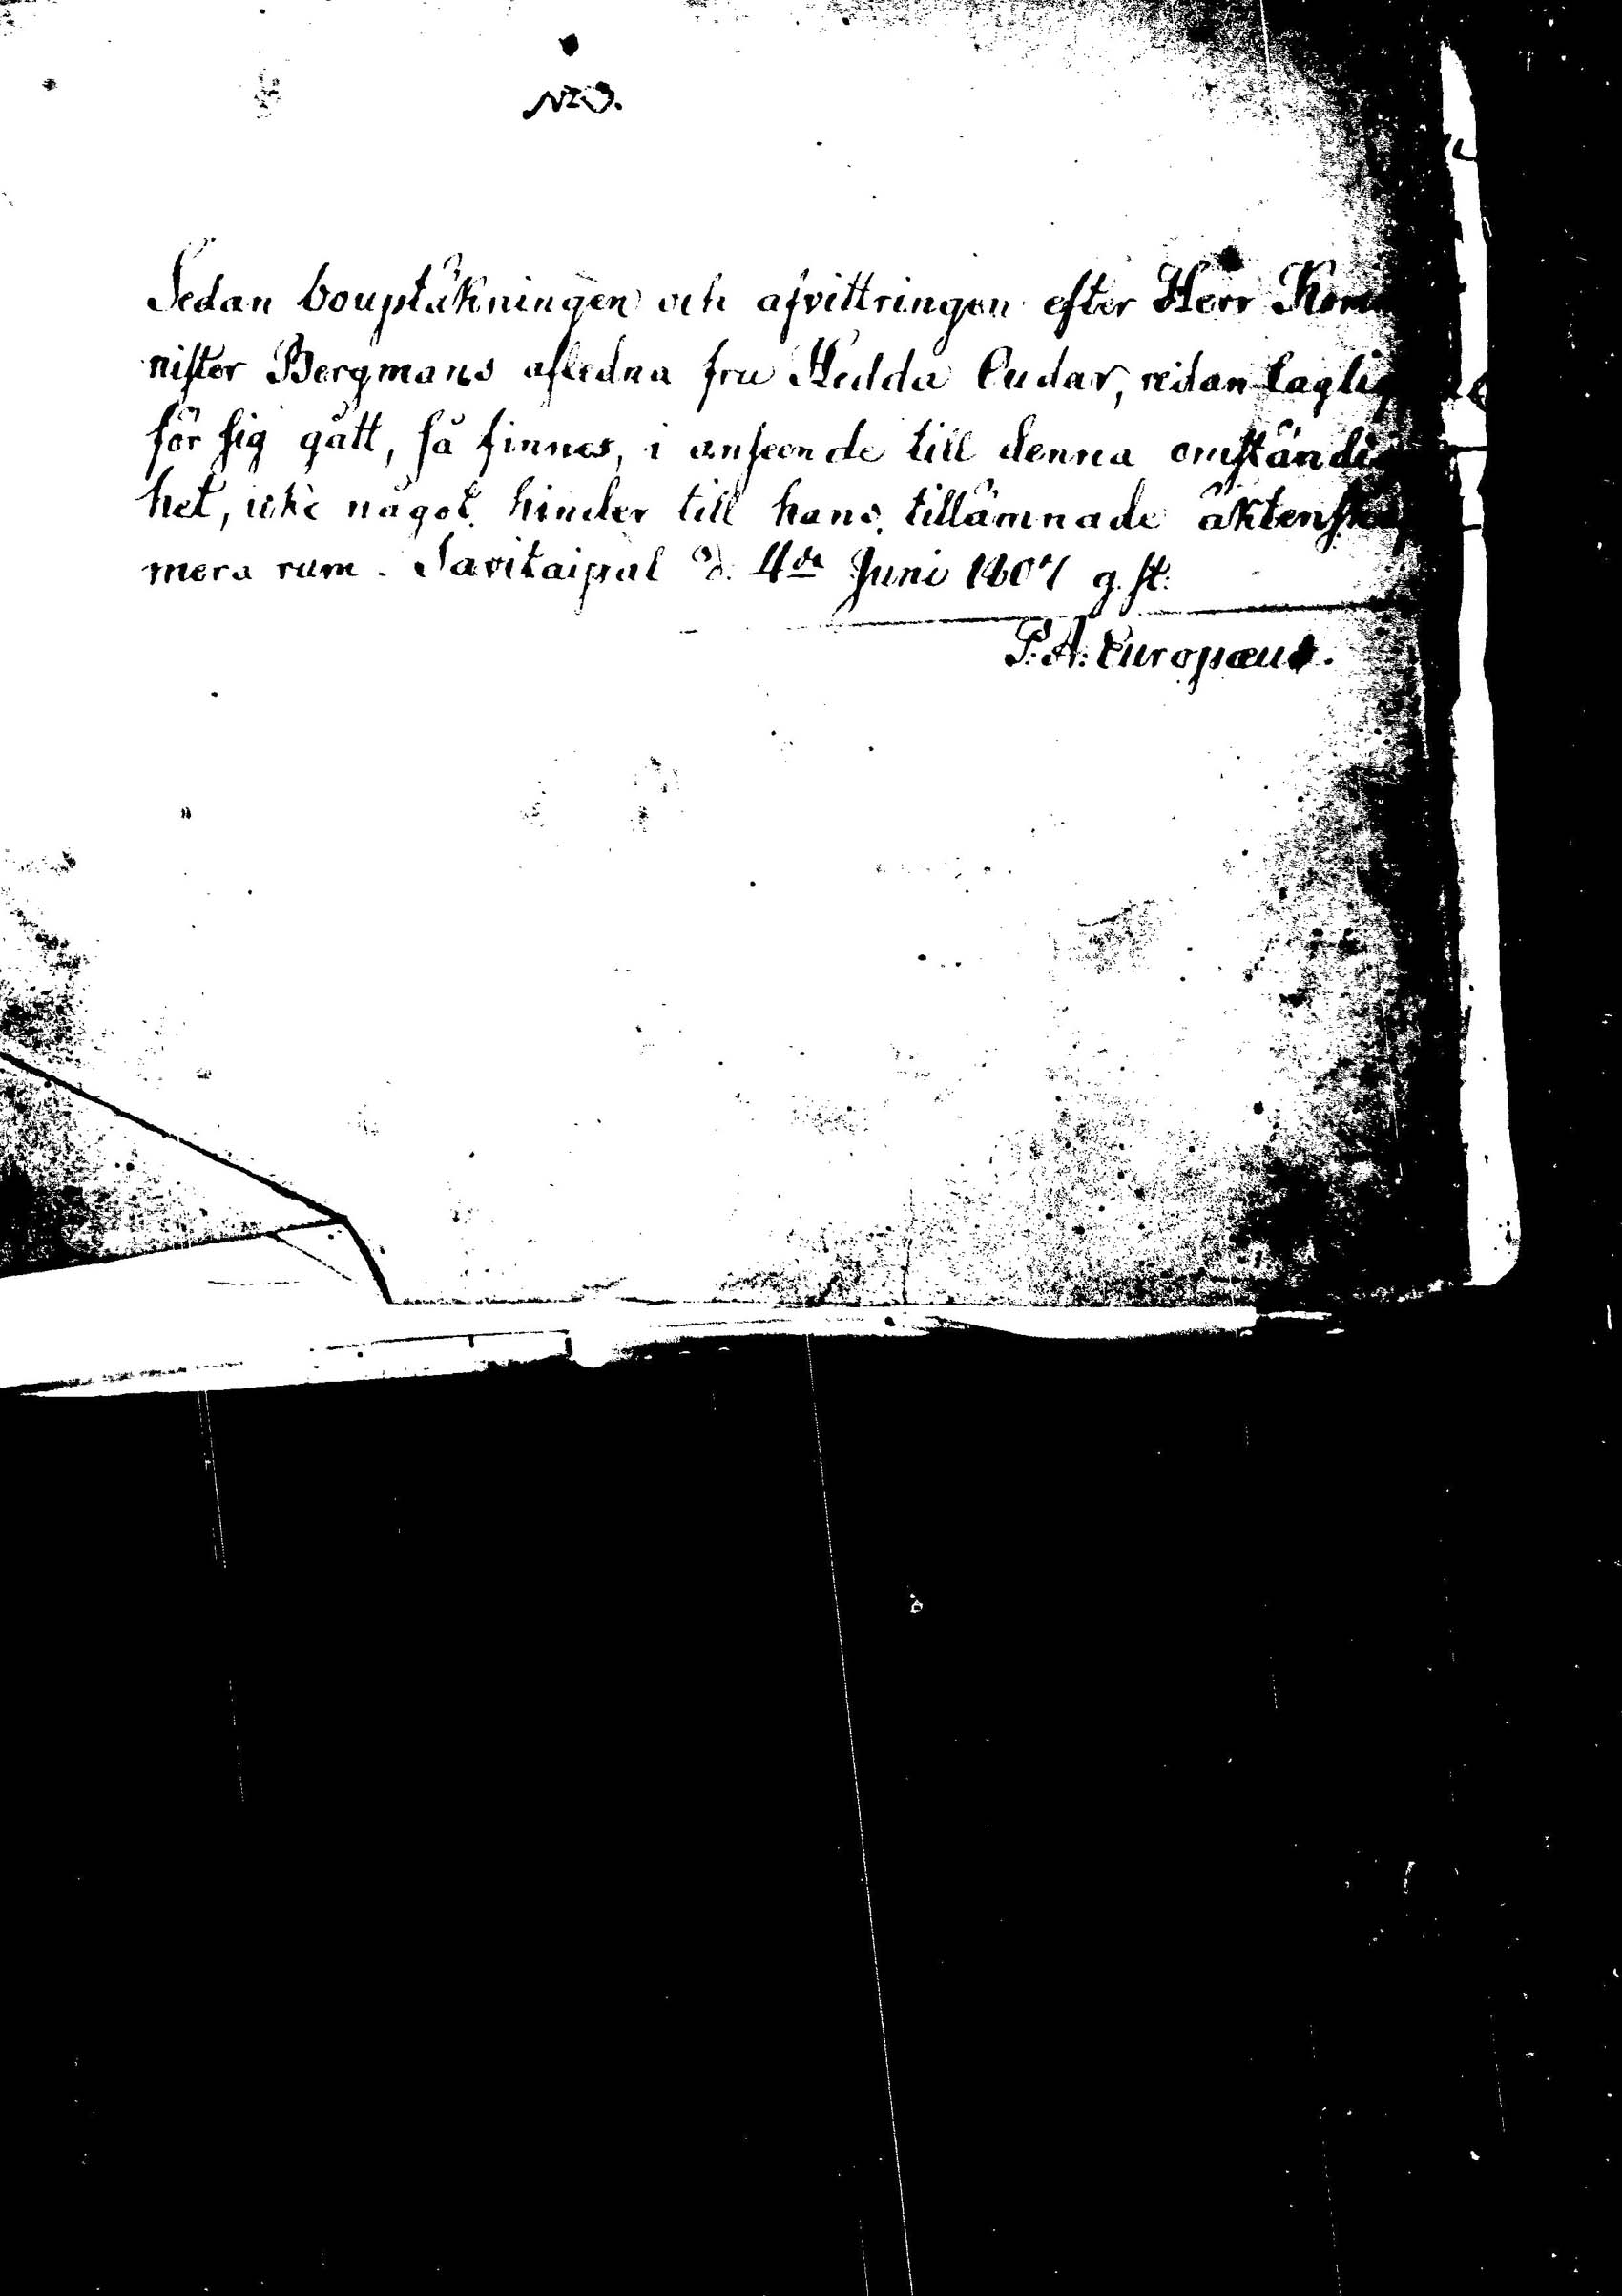 N:o 3.
Sedan bouptäkningen och afvittringen efter Herr Kom
nister Bergmans afledna fru Hedda Eudar, redan lagli
för sig gått, så finnes, i anseende till denna omständi
het, icke något hinder till hans tillämnade äktenska
mera rum. Savitaipal d. 4de Juni 1807 g. st.
P. A. Europæus.